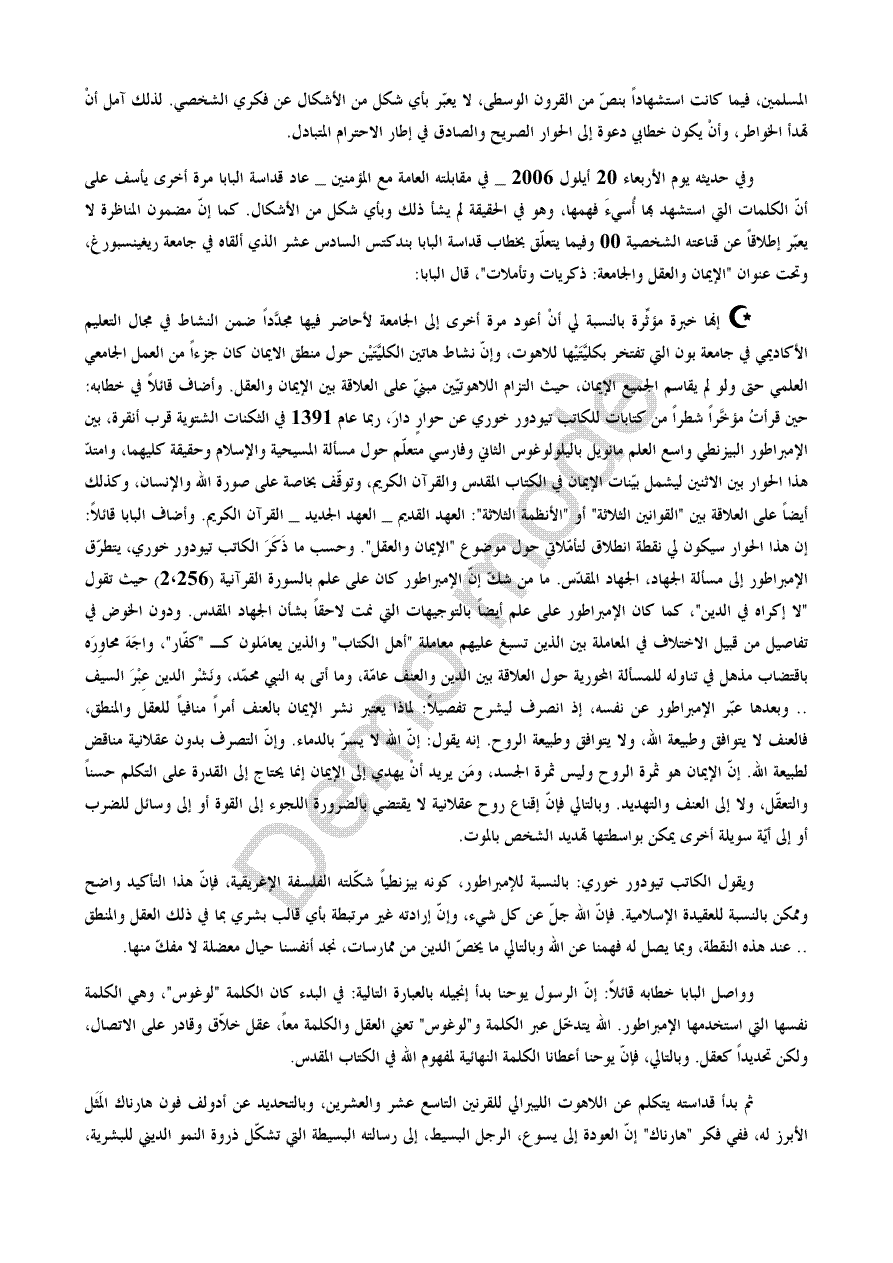 المسلمين، فيما كانت استشهاداً بنصّ من القرون الوسطى، لا يعبّر بأي شكل من الأشكال عن فكري الشخصي. لذلك آمل أنْ
تهدأ الخواطر، وأنْ يكون خطابي دعوة إلى الحوار الصريح والصادق في إطار الاحترام المتبادل.
وفي حديثه يوم الأربعاء 20 أيلول 2006 _ في مقابلته العامة مع المؤمنين _ عاد قداسة البابا مرة أخرى يأسف على
أنّ الكلمات التي استشهد بها أُسيءَ فهمها، وهو في الحقيقة لم يشأ ذلك وبأي شكل من الأشكال. كما إنّ مضمون المناظرة لا
يعبّر إطلاقاً عن قناعته الشخصية 00 وفيما يتعلّق بخطاب قداسة البابا بندكتس السادس عشر الذي ألقاه في جامعة ريغينسبورغ،
وتحت عنوان "الإيمان والعقل والجامعة: ذكريات وتأملات"، قال البابا:
☪ إنها خبرة مؤثّرة بالنسبة لي أنْ أعود مرة أخرى إلى الجامعة لأحاضر فيها مجدَّداً ضمن النشاط في مجال التعليم
الأكاديمي في جامعة بون التي تفتخر بكليَّتَيْها للاهوت، وإنّ نشاط هاتين الكليَّتَيْن حول منطق الايمان كان جزءاً من العمل الجامعي
العلمي حتى ولو لم يقاسم الجميع الإيمان، حيث التزام اللاهوتيّين مبنيّ على العلاقة بين الإيمان والعقل. وأضاف قائلاً في خطابه:
حين قرأتُ مؤخَّراً شطراً من كتابات للكاتب تيودور خوري عن حوارٍ دارَ، ربما عام 1391 في الثكنات الشتوية قرب أنقرة، بين
الإمبراطور البيزنطي واسع العلم مانويل باليلولوغوس الثاني وفارسي متعلّم حول مسألة المسيحية والإسلام وحقيقة كليهما، وامتدّ
هذا الحوار بين الاثنين ليشمل بيّنات الإيمان في الكتاب المقدس والقرآن الكريم، وتوقّف بخاصة على صورة الله والإنسان، وكذلك
أيضاً على العلاقة بين "القوانين الثلاثة" أو "الأنظمة الثلاثة": العهد القديم _ العهد الجديد _ القرآن الكريم. وأضاف البابا قائلاً:
إن هذا الحوار سيكون لي نقطة انطلاق لتأمّلاتي حول موضوع "الإيمان والعقل". وحسب ما ذَكَرَ الكاتب تيودور خوري، يتطرّق
الإمبراطور إلى مسألة الجهاد، الجهاد المقدّس. ما من شكّ إنّ الإمبراطور كان على علم بالسورة القرآنية (2،256) حيث تقول
"لا إكراه في الدين"، كما كان الإمبراطور على علم أيضاً بالتوجيهات التي نمت لاحقاً بشأن الجهاد المقدس. ودون الخوض في
تفاصيل من قبيل الاختلاف في المعاملة بين الذين تسبغ عليهم معاملة "أهل الكتاب" والذين يعامَلون كـــ "كفّار"، واجَهَ محاوِرَه
باقتضاب مذهل في تناوله للمسألة المحورية حول العلاقة بين الدين والعنف عامّة، وما أتى به النبي محمّد، ونَشْر الدين عِبْرَ السيف
.. وبعدها عبّر الإمبراطور عن نفسه، إذ انصرف ليشرح تفصيلاً: لماذا يعتبر نشر الإيمان بالعنف أمراً منافياً للعقل والمنطق،
فالعنف لا يتوافق وطبيعة الله، ولا يتوافق وطبيعة الروح. إنه يقول: إنّ الله لا يسرّ بالدماء. وإنّ التصرف بدون عقلانية مناقض
لطبيعة الله. إنّ الإيمان هو ثمرة الروح وليس ثمرة الجسد، ومَن يريد أنْ يهدي إلى الإيمان إنما يحتاج إلى القدرة على التكلم حسناً
والتعقّل، ولا إلى العنف والتهديد. وبالتالي فإنّ إقناع روح عقلانية لا يقتضي بالضرورة اللجوء إلى القوة أو إلى وسائل للضرب
أو إلى أيّة سويلة أخرى يمكن بواسطتها تهديد الشخص بالموت.
ويقول الكاتب تيودور خوري: بالنسبة للإمبراطور، كونه بيزنطياً شكّلته الفلسفة الإغريقية، فإنّ هذا التأكيد واضح
وممكن بالنسبة للعقيدة الإسلامية. فإنّ الله جلّ عن كل شيء، وإنّ إرادته غير مرتبطة بأي قالب بشري بما في ذلك العقل والمنطق
.. عند هذه النقطة، وبما يصل له فهمنا عن الله وبالتالي ما يخصّ الدين من ممارسات، نجد أنفسنا حيال معضلة لا مفكّ منها.
وواصل البابا خطابه قائلاً: إنّ الرسول يوحنا بدأ إنجيله بالعبارة التالية: في البدء كان الكلمة "لوغوس"، وهي الكلمة
نفسها التي استخدمها الإمبراطور. الله يتدخّل عبر الكلمة و"لوغوس" تعني العقل والكلمة معاً، عقل خلاّق وقادر على الاتصال،
ولكن تحديداً كعقل. وبالتالي، فإنّ يوحنا أعطانا الكلمة النهائية لمفهوم الله في الكتاب المقدس.
ثم بدأ قداسته يتكلم عن اللاهوت الليبرالي للقرنين التاسع عشر والعشرين، وبالتحديد عن أدولف فون هارناك المَثَل
الأبرز له، ففي فكر "هارناك" إنّ العودة إلى يسوع، الرجل البسيط، إلى رسالته البسيطة التي تشكّل ذروة النمو الديني للبشرية،
Demo mode